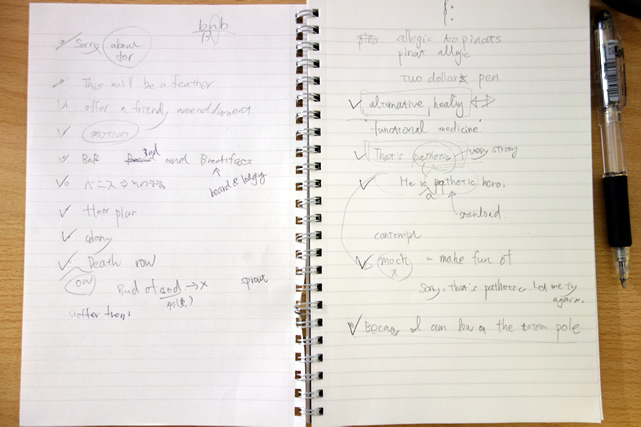 bnb
Sorry about
for
This will be a feather
offer a friendly amendment
motion
BnB Bed and Breakfast
board & lodging
floor plan
colony
Death row
Bud of → x sprout
suffer them
allegic too pinats
pinat allgic
Two dollars pen
alternative, healing ↔
"functional medicine"
That's pathetic very strong
He is pathetic hero.
a
contempt
mock - make fun of
Sorry, that's pathetic Let me try
again.
I am low on the totem pole